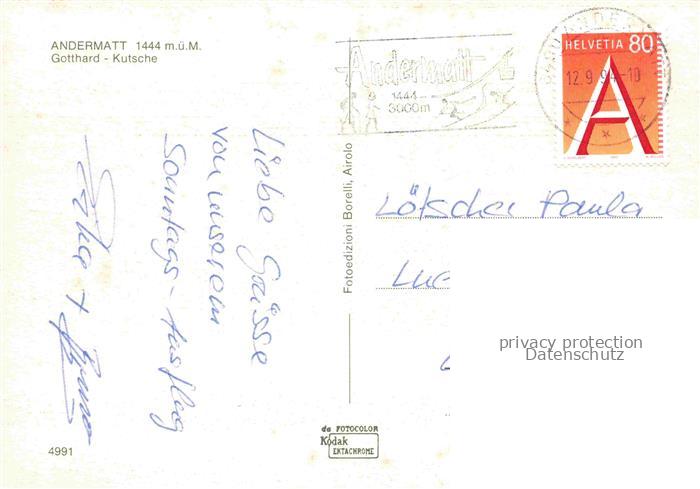 ANDERMATT 1444 m.ü.M.
Gotthard - Kutsche
Andermatt
1444-
3000m
12.9.94-10
HELVETIA 80
A
Liebe Grüsse
von unserem
Sonntags-Ausflug
+ Bruno
Fotoedizioni Borelli, Airolo
Lötscher Paula
Lu
privacy protection
Datenschutz
da FOTOCOLOR
Kodak
EKTACHROME
4991